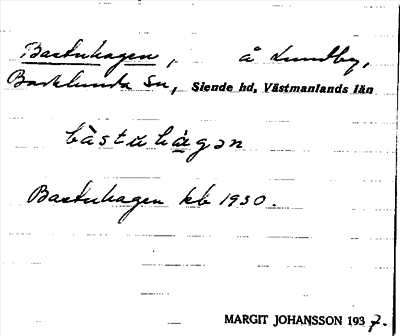 Bastuhagen, å Lundby,
Barklunda Sn, Siende hd, Västmanlands län
bàstuhàgən
Bastuhagen kb 1930.
MARGIT JOHANSSON 1937.